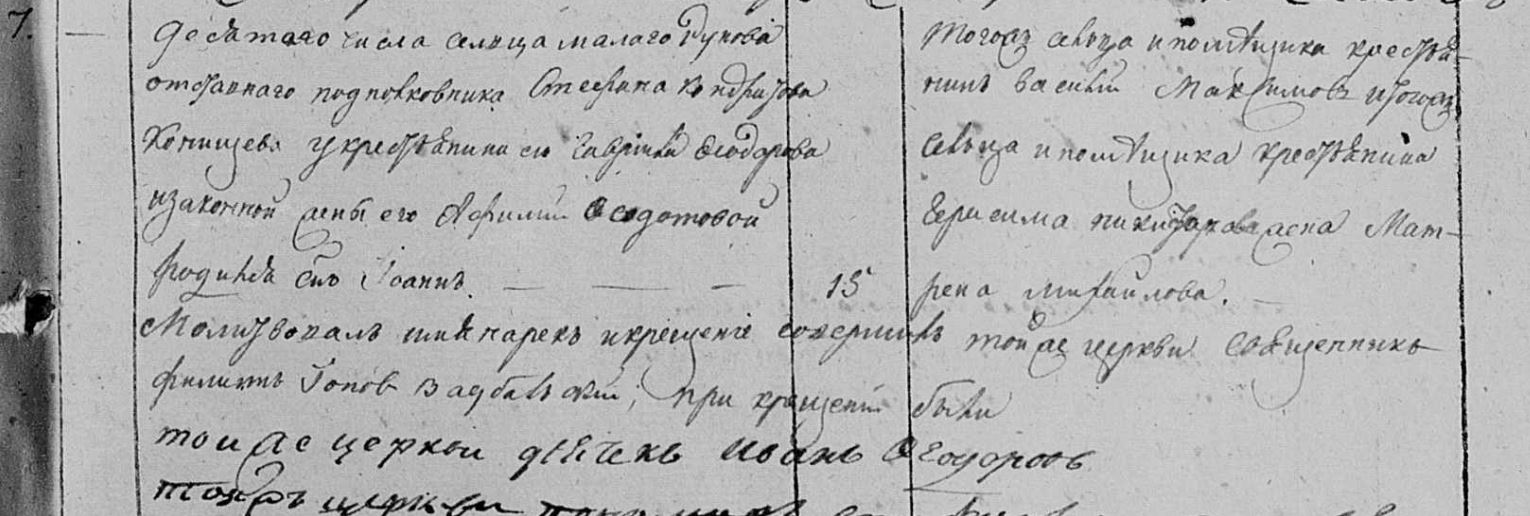 7.
десятаго числа сельца малаго Дунова
отставнаго подполковника Стефана Кондратова
Хомищева у крестьянина ево Гаврила Феодорова
и законной жены его Афимии Феодотовой
родился сынъ Iоаннъ. 15
Тогожъ сельца и помѣщика крестья-
нинъ василiй Максимовъ и тогожъ
сельца и помѣщика крестьянина
Герасима никифорова жена Мат-
рена михаилова.
Молитвовалъ имя нарекъ и крещенiе совершилъ тойже церкви священникъ
филиппъ Iоновъ , при крещенiи были
тойже церкви дьячекъ иванъ Феодоровъ
тояжъ церкви